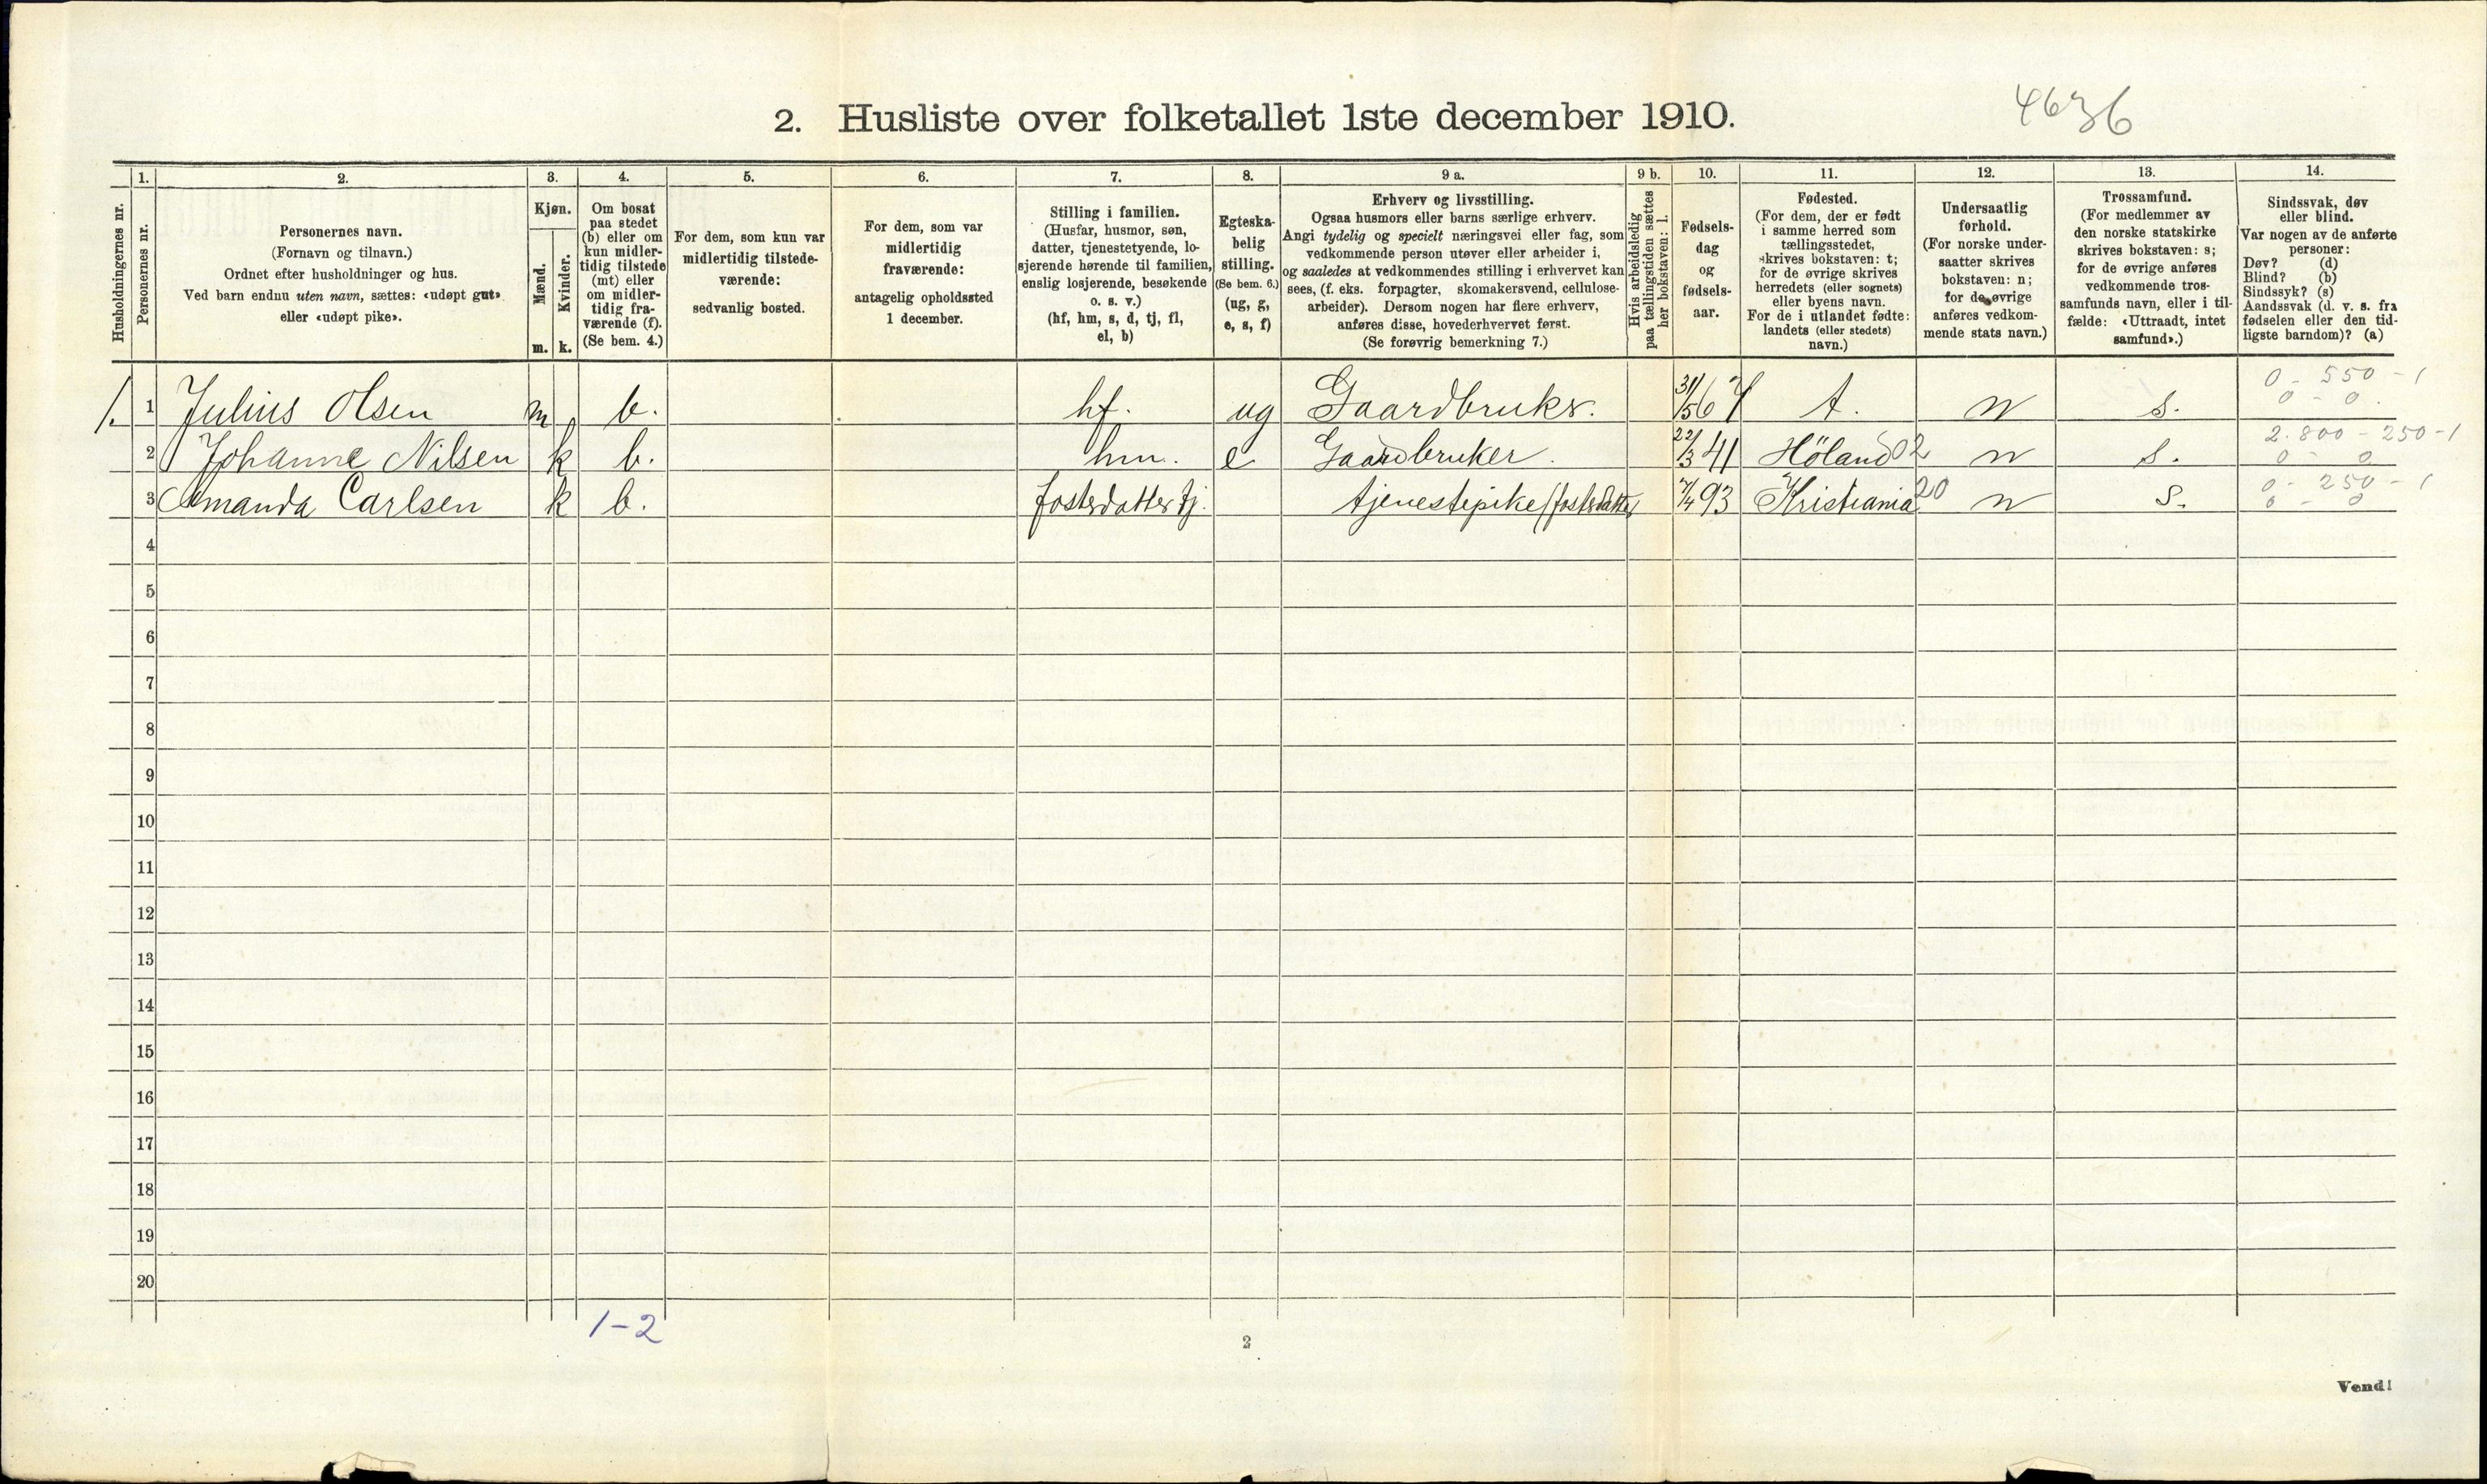 4636
2. Husliste over folketallet 1ste december 1910.
Husholdningernes nr.
1.
Personernes nr.
2.
Personernes navn.
(Fornavn og tilnavn.)
Ordnet efter husholdninger og hus.
Ved barn endnu uten navn, sættes: «udøpt gut»
eller «udøpt pike».
3.
Kjøn.
Mænd.
Kvinder.
m. k.
4.
Om bosat
paa stedet
(b) eller om
kun midler-
tidig tilstede
(mt) eller
om midler-
tidig fra-
værende (f).
(Se bem. 4.)
5.
For dem, som kun var
midlertidig tilstede-
værende:
sedvanlig bosted.
6.
For dem, som var
midlertidig
fraværende:
antagelig opholdssted
1 december.
7.
Stilling i familien.
(Husfar, husmor, søn,
datter, tjenestetyende, lo-
sjerende hørende til familien,
enslig losjerende, besøkende
o. s. v.)
(hf, hm, s, d, tj, fl,
el, b)
8.
Egteska-
belig
stilling.
(Se bem. 6.)
(ug, g,
e, s, f)
9 a.
Erhverv og livsstilling.
Ogsaa husmors eller barns særlige erhverv.
Angi tydelig og specielt næringsvei eller fag, som
vedkommende person utøver eller arbeider i,
og saaledes at vedkommendes stilling i erhvervet kan
sees, (f. eks. forpagter, skomakersvend, cellulose-
arbeider). Dersom nogen har flere erhverv,
anføres disse, hovederhvervet først.
(Se forøvrig bemerkning 7.)
9 b.
Hvis arbeidsledig
paa tællingstiden sættes
her bokstaven: l.
10.
Fødsels-
dag
og
fødsels-
aar.
11.
Fødested.
(For dem, der er født
i samme herred som
tællingsstedet,
skrives bokstaven: t;
for de øvrige skrives
herredets (eller sognets)
eller byens navn.
For de i utlandet fødte:
landets (eller stedets)
navn.)
12.
Undersaatlig
forhold.
(For norske under-
saatter skrives
bokstaven: n;
for de øvrige
anføres vedkom-
mende stats navn.)
13.
Trossamfund.
(For medlemmer av
den norske statskirke
skrives bokstaven: s;
for de øvrige anføres
vedkommende tros-
samfunds navn, eller i til-
fælde: «Uttraadt, intet
samfund».)
14.
Sindssvak, døv
eller blind.
Var nogen av de anførte
personer:
Døv? (d)
Blind? (b)
Sindssyk? (s)
Aandssvak (d. v. s. fra
fødselen eller den tid-
ligste barndom)? (a)
1. 1 Julius Olsen m b. hf. ug Gaardbruker. 31/5 67 t. n s. 0 - 550 - 1
0 - 0.
2 Johanne Nilsen k b. hm. e Gaardbruker. 22/3 41 Höland 02 n s. 2.800 - 250 - 1
0 - 0
3 Amanda Carlsen k b. fosterdatter tj. tjenestepike/fosterdatter 7/4 93 Kristiania 20 n s. 0 - 250 - 1
0 - 0
4
5
6
7
8
9
10
11
12
13
14
15
16
17
18
19
20
1-2
2
Vend!